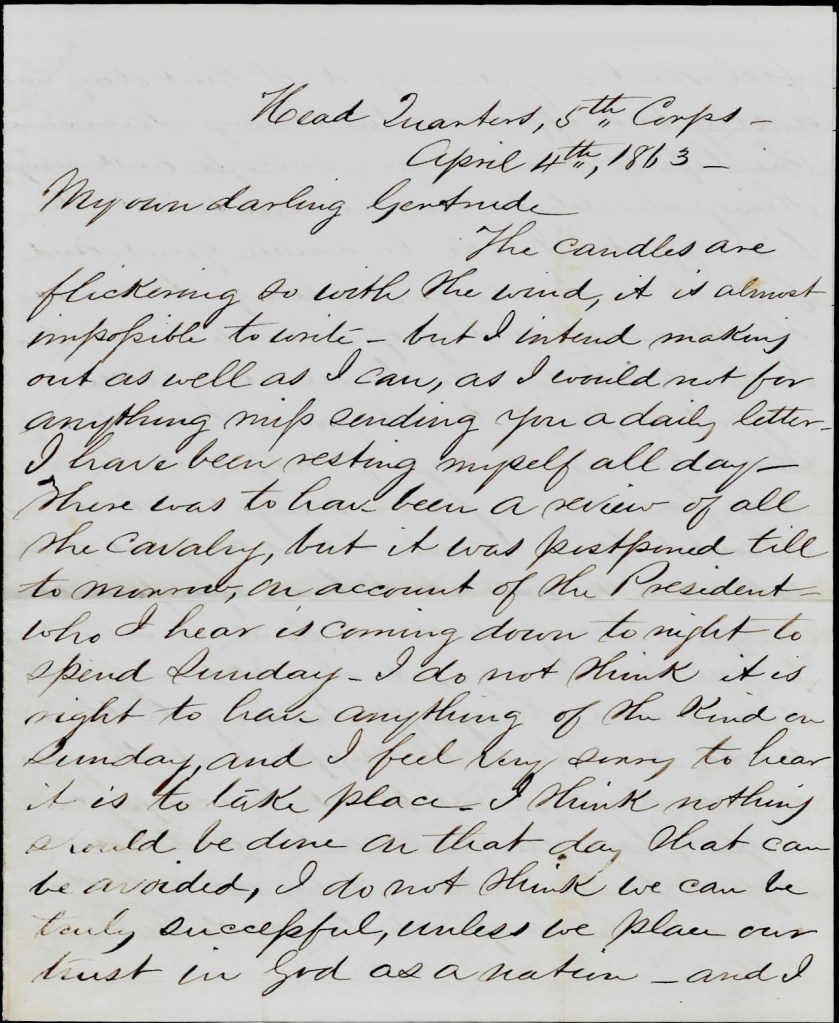 Head Quarters, 5th Corps –
April 4th, 1863 –
My own darling Gertrude
The candles are
flickering so with the wind, it is almost
impossible to write – but I intend making
out as well as I can, as I would not for
anything miss sending you a daily letter –
I have been resting myself all day –
There was to have been a review of all
the cavalry, but it was postponed till
to morrow, on account of the President –
who I hear is coming down to night to
spend Sunday – I do not think it is
right to have anything of the kind on
Sunday, and I feel very sorry to hear
it is to take place – I think nothing
should be done on that day that can
be avoided, I do not think we can be
truly successful, unless we place our
trust in God as a nation – and I